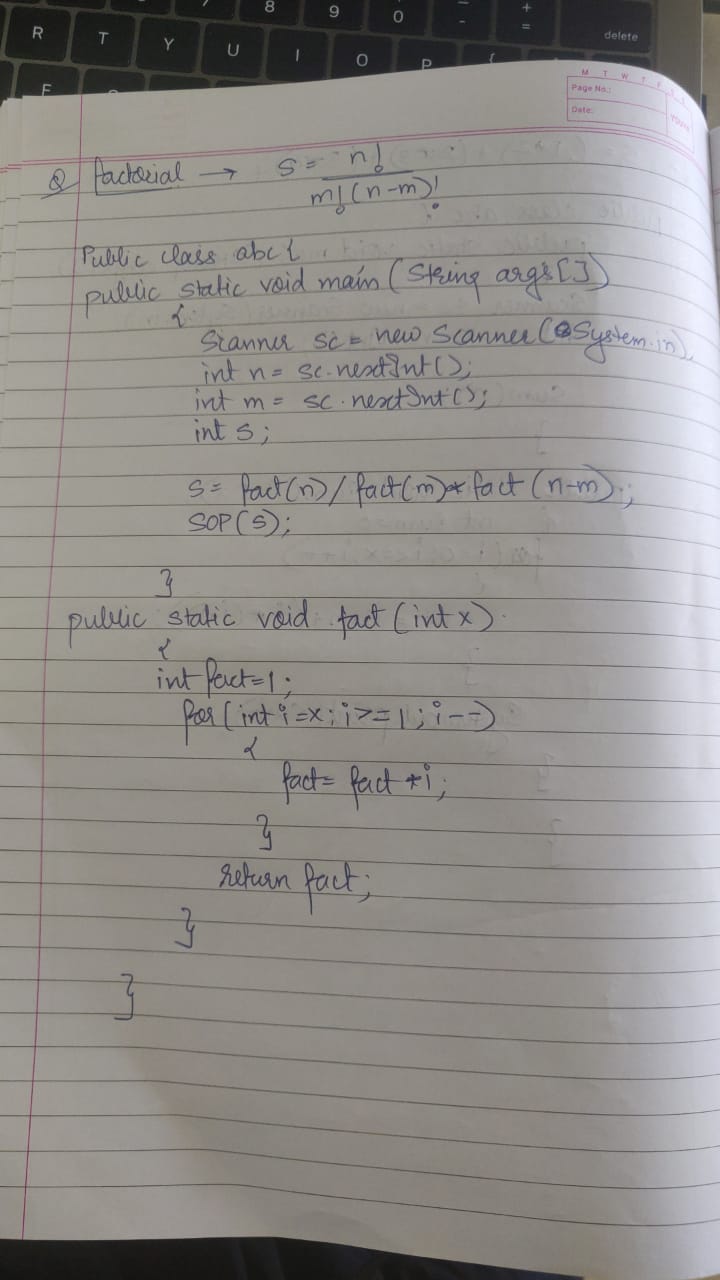 8 9 0 - + =
R T Y U I O P { delete
F
M T W T F S S
Page No.:
Date:
YOUVA
Q factorial → s = n!
m!(n-m)!
Public class abc {
public static void main (String args[])
{
Scanner sc = new Scanner(System.in),
int n = sc.nextInt();
int m = sc.nextInt();
int s;
s = fact(n) / fact(m) * fact (n-m);
SOP(s);
}
public static void fact (int x)
{
int fact=1;
for (int i=x; i>=1; i--)
{
fact = fact *i;
}
return fact;
}
}